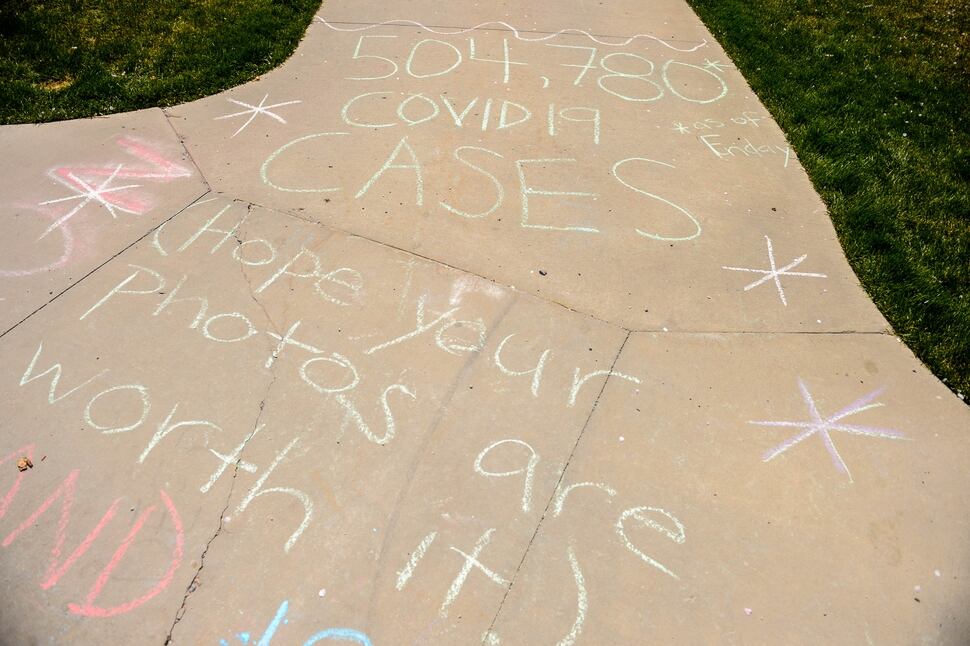 504,780*
COVID19
*as of
Friday
CASES
(Hope your
photos are
worth it)